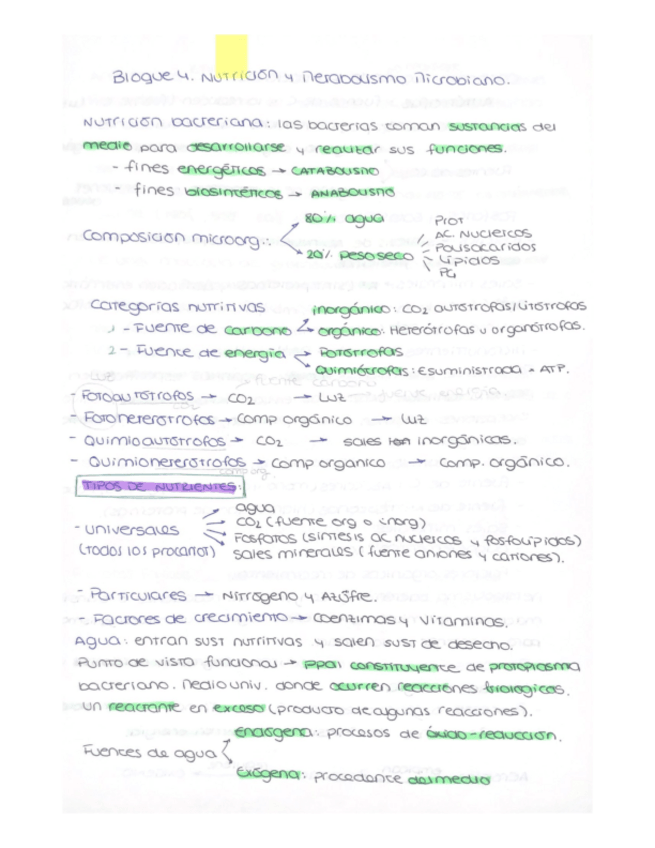 Bloque 4. Nutrición y Metabolismo Microbiano.
Nutrición bacteriana: las bacterias toman sustancias del
medio para desarrollarse y realizar sus funciones.
- fines energéticos → CATABOLISMO
- fines biosintéticos → ANABOLISMO
Composición microorg.:
80% agua
20% peso seco
Prot
Ac. Nucleicos
Polisacáridos
Lípidos
PG
Categorías nutritivas
1 - Fuente de carbono
inorgánico: CO2 autótrofas/litótrofas
orgánico: Heterótrofas u organótrofas.
2 - Fuente de energía
Fotótrofas
Quimiótrofas: E suministrada x ATP.
- Fotoautótrofos → CO2 → Luz
- Fotoheterótrofos → Comp orgánico → Luz
- Quimioautótrofos → CO2 → sales inorgánicas.
- Quimioheterótrofos → comp organico → comp. orgánico.
TIPOS DE NUTRIENTES:
- Universales
(todos los procariot)
agua
CO2 (fuente org o inorg)
Fosfatos (síntesis ac nucleicos y fosfolípidos)
sales minerales (fuente aniones y cationes).
- Particulares → Nitrógeno y Azúfre.
- Factores de crecimiento → coenzimas y vitaminas.
Agua: entran sust nutritivas y salen sust de desecho.
Punto de vista funcional → ppal constituyente de protoplasma
bacteriano. Medio univ. donde ocurren reacciones biologicas.
Un reactante en exceso (producto de algunas reacciones).
Fuentes de agua
endógena: procesos de óxido-reducción.
exógena: procedente del medio